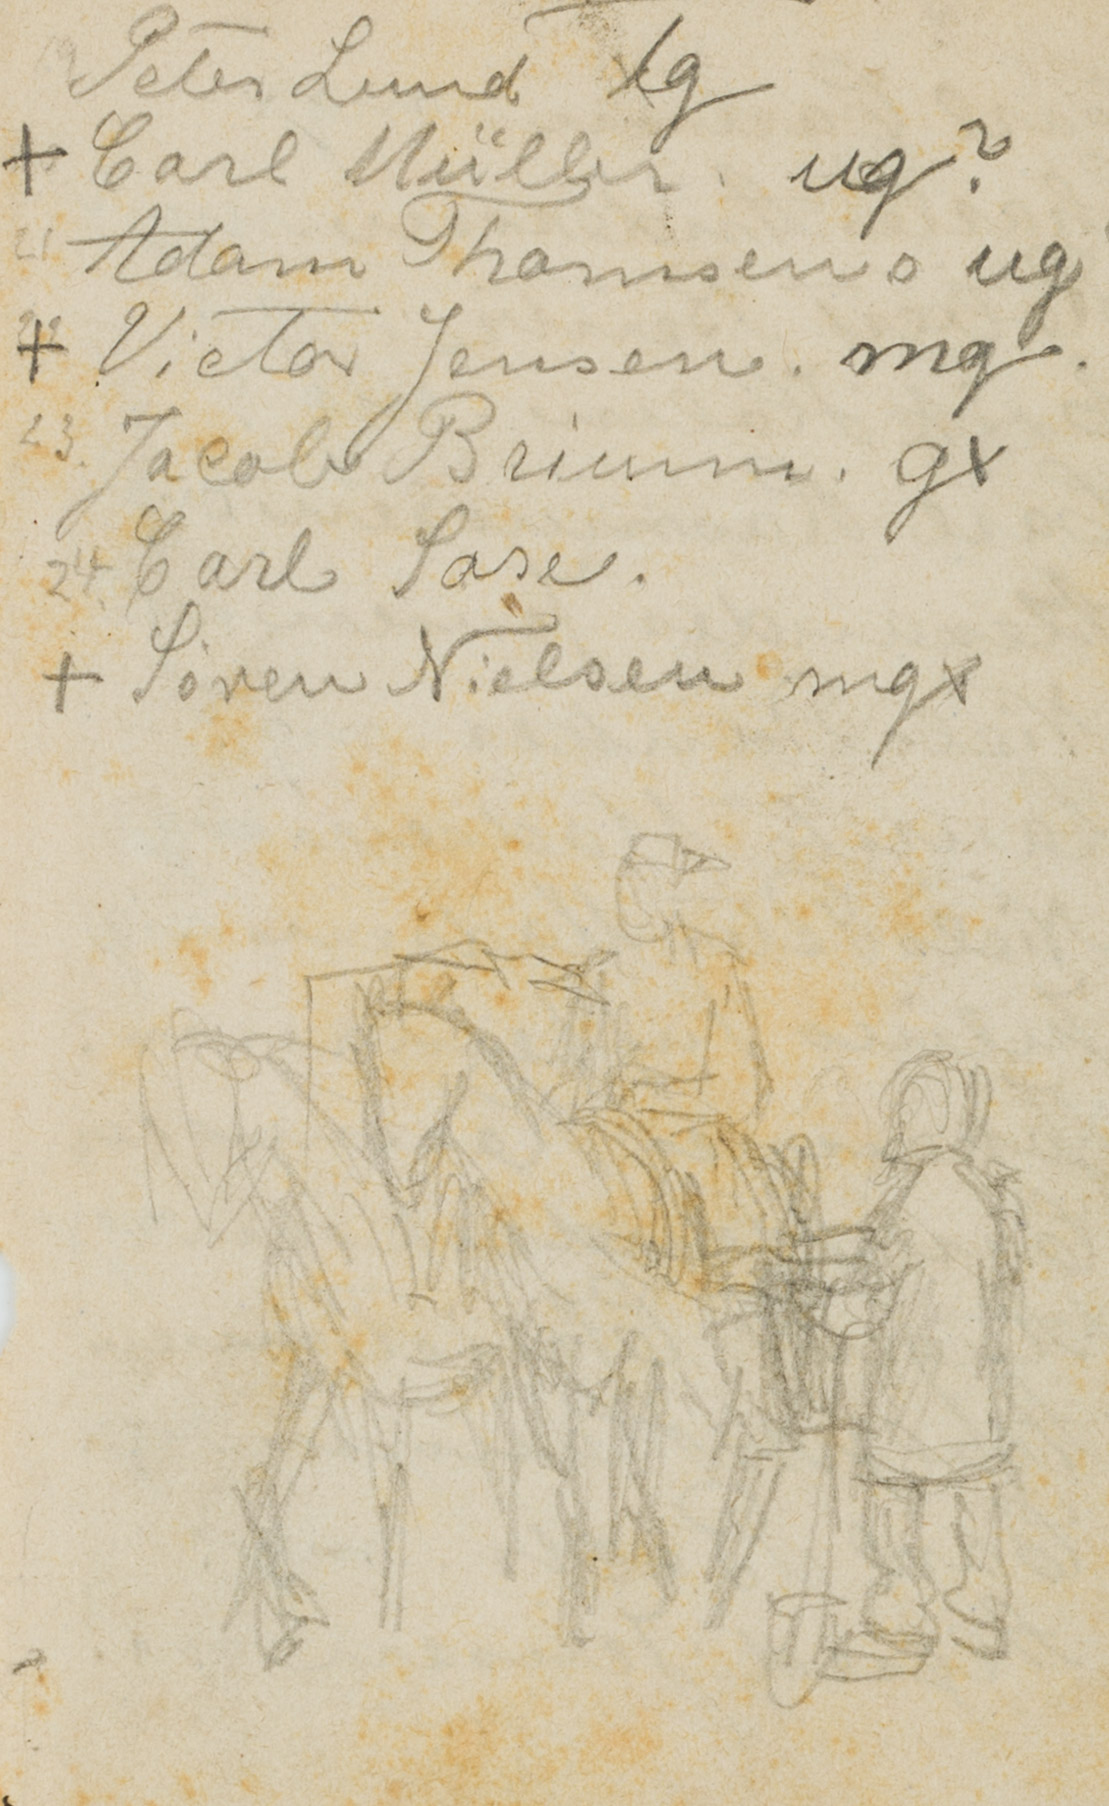 Peter Lund tg
+ Carl Müller. ug?
21 Adam Thomsen o ug
+ Victor Jensen. mg.
23. Jacob Brimm. gx
24. Carl Sase.
+ Sören Nielsen mgx